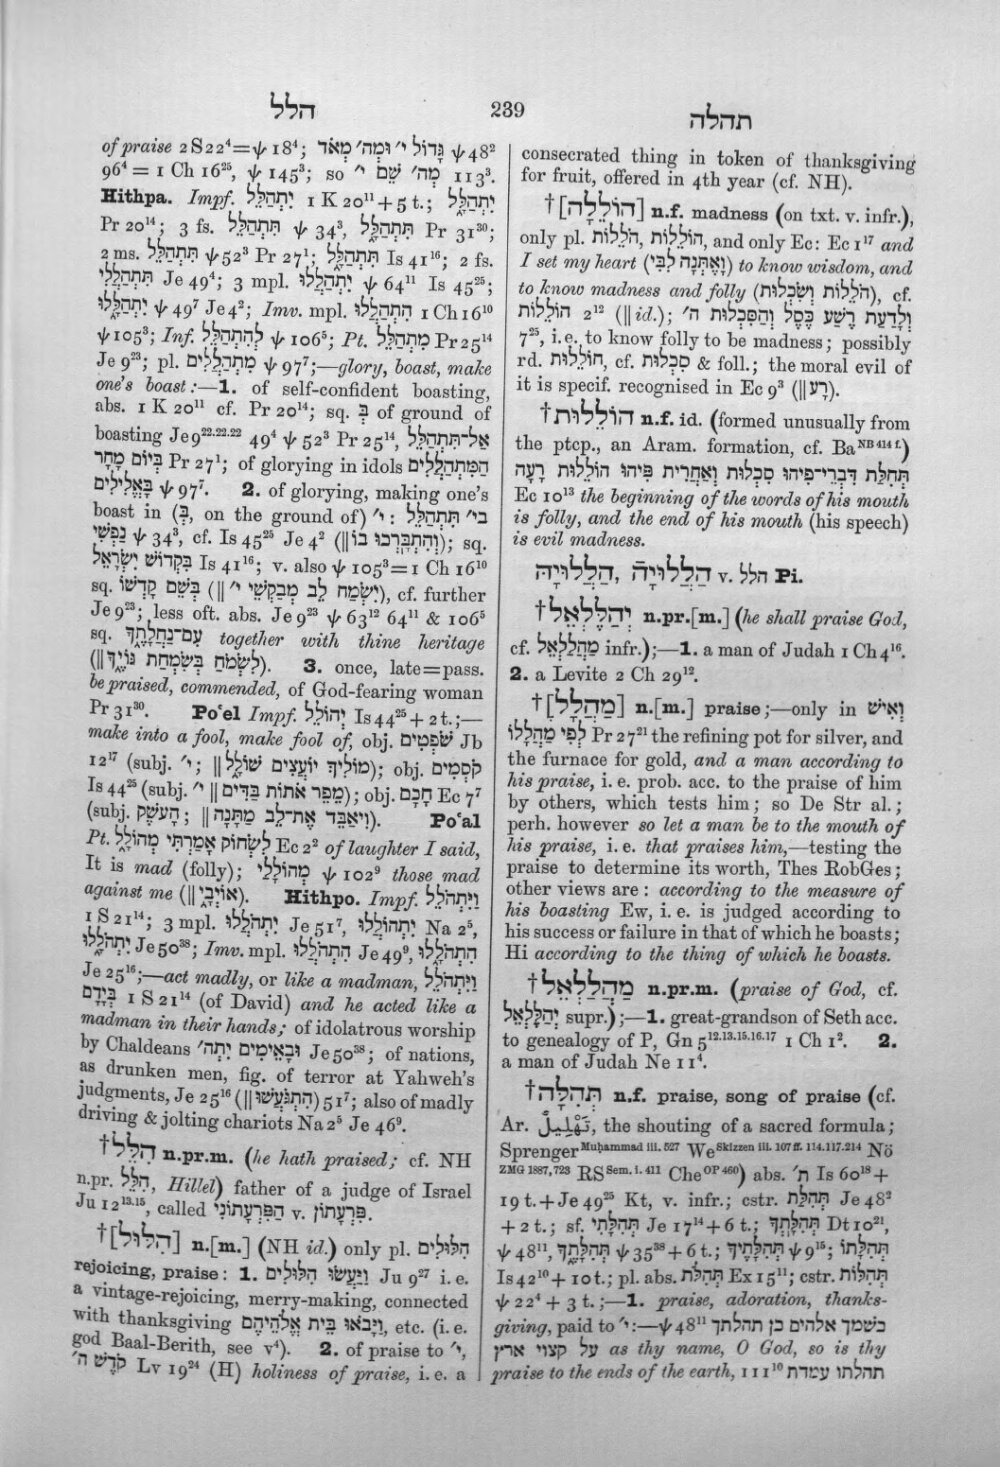 הלל 239 תהלה
of praise 2 S 22⁴=ψ 18⁴; גָּדוֹל י׳ וּמְה׳ מְאֹד ψ 48²
96⁴ = 1 Ch 16²⁵, ψ 145³; so מְה׳ שֵׁם י׳ 113³.
Hithpa. Impf. יִתְהַלֵּל 1 K 20¹¹+5 t.; יִתְהַלָּֽל
Pr 20¹⁴; 3 fs. תִּתְהַלֵּל ψ 34³, תִּתְהַלָּֽל Pr 31³⁰;
2 ms. תִּתְהַלֵּל ψ 52³ Pr 27¹; תִּתְהַלָּֽל Is 41¹⁶; 2 fs.
תִּתְהַלְלִי Je 49⁴; 3 mpl. יִתְהַלְלוּ ψ 64¹¹ Is 45²⁵;
יִתְהַלָּֽלוּ ψ 49⁷ Je 4²; Imv. mpl. הִתְהַלְלוּ 1 Ch 16¹⁰
ψ 105³; Inf. לְהִתְהַלֵּל ψ 106⁵; Pt. מִתְהַלֵּל Pr 25¹⁴
Je 9²³; pl. מִתְהַלְלִים ψ 97⁷;—glory, boast, make
one's boast:—1. of self-confident boasting,
abs. 1 K 20¹¹ cf. Pr 20¹⁴; sq. בְּ of ground of
boasting Je 9²²·²²·²² 49⁴ ψ 52³ Pr 25¹⁴, אַל־תִּתְהַלֵּל
בְּיוֹם מָחָר Pr 27¹; of glorying in idols הַמִּתְהַלְלִים
בָּאֱלִילִים ψ 97⁷. 2. of glorying, making one's
boast in (בְּ, on the ground of) י׳: בי׳ תִּתְהַלֵּל
נַפְשִׁי ψ 34³, cf. Is 45²⁵ Je 4² (‖וְהִתְבָּרְכוּ בוֹ); sq.
בִּקְדוֹשׁ יִשְׂרָאֵל Is 41¹⁶; v. also ψ 105³=1 Ch 16¹⁰
sq. בְּשֵׁם קָדְשׁוֹ (‖יִשְׂמַח לֵב מְבַקְשֵׁי י׳), cf. further
Je 9²³; less oft. abs. Je 9²³ ψ 63¹² 64¹¹ & 106⁵
sq. עִם־נַחֲלָתֶךָ together with thine heritage
(‖לִשְׂמֹחַ בְּשִׂמְחַת גּוֹיֶךָ). 3. once, late=pass.
be praised, commended, of God-fearing woman
Pr 31³⁰. Poʿel Impf. יְהוֹלֵל Is 44²⁵+2 t.;—
make into a fool, make fool of, obj. שֹׁפְטִים Jb
12¹⁷ (subj. י׳; ‖מוֹלִיךְ יוֹעֲצִים שׁוֹלָל); obj. קֹסְמִים
Is 44²⁵ (subj. י׳ ‖מֵפֵר אֹתוֹת בַּדִּים); obj. חָכָם Ec 7⁷
(subj. הָעֹשֶׁק; ‖וִיאַבֵּד אֶת־לֵב מַתָּנָה). Poʿal
Pt. לִשְׂחוֹק אָמַרְתִּי מְהוֹלָל Ec 2² of laughter I said,
It is mad (folly); מְהוֹלָלַי ψ 102⁹ those mad
against me (‖אוֹיְבַי). Hithpo. Impf. וַיִּתְהֹלֵל
1 S 21¹⁴; 3 mpl. יִתְהֹלְלוּ Je 51⁷, יִתְהוֹלְלוּ Na 2⁵,
יִתְהֹלָֽלוּ Je 50³⁸; Imv. mpl. הִתְהֹלְלוּ Je 49⁹, הִתְהֹלָֽלוּ
Je 25¹⁶;—act madly, or like a madman, וַיִּתְהֹלֵל
בְּיָדָם 1 S 21¹⁴ (of David) and he acted like a
madman in their hands; of idolatrous worship
by Chaldeans וּבָאֵימִים יִתְה׳ Je 50³⁸; of nations,
as drunken men, fig. of terror at Yahweh's
judgments, Je 25¹⁶ (‖הִתְגֹּעֲשׁוּ) 51⁷; also of madly
driving & jolting chariots Na 2⁵ Je 46⁹.
†הִלֵּל n.pr.m. (he hath praised; cf. NH
n.pr. הִלֵּל, Hillel) father of a judge of Israel
Ju 12¹³·¹⁵, called הַפִּרְעָתוֹנִי v. פִּרְעָתוֹן.
†[הִלּוּל] n.[m.] (NH id.) only pl. הִלּוּלִים
rejoicing, praise: 1. וַיַּעֲשׂוּ הִלּוּלִים Ju 9²⁷ i.e.
a vintage-rejoicing, merry-making, connected
with thanksgiving וַיָּבֹאוּ בֵּית אֱלֹהֵיהֶם, etc. (i.e.
god Baal-Berith, see v⁴). 2. of praise to י׳,
קֹדֶשׁ ה׳ Lv 19²⁴ (H) holiness of praise, i.e. a
consecrated thing in token of thanksgiving
for fruit, offered in 4th year (cf. NH).
†[הוֹלֵלָה] n.f. madness (on txt. v. infr.),
only pl. הוֹלֵלוֹת, הֹלֵלוֹת, and only Ec: Ec 1¹⁷ and
I set my heart (וָאֶתְּנָה לִבִּי) to know wisdom, and
to know madness and folly (הֹלֵלוֹת וְשִׂכְלוּת), cf.
הוֹלֵלוֹת 2¹² (‖id.); וְלָדַעַת רֶשַׁע כֶּסֶל וְהַסִּכְלוּת ה׳
7²⁵, i.e. to know folly to be madness; possibly
rd. הוֹלֵלוּת, cf. סִכְלוּת & foll.; the moral evil of
it is specif. recognised in Ec 9³ (‖רָע).
†הוֹלֵלוּת n.f. id. (formed unusually from
the ptcp., an Aram. formation, cf. Ba NB 414 f.)
תְּחִלַּת דִּבְרֵי־פִיהוּ סִכְלוּת וְאַחֲרִית פִּיהוּ הוֹלֵלוּת רָעָה
Ec 10¹³ the beginning of the words of his mouth
is folly, and the end of his mouth (his speech)
is evil madness.
הַלֲלוּיָהּ, הַלֲלוּיָהּ v. הלל Pi.
†יְהַלֶּלְאֵל n.pr.[m.] (he shall praise God,
cf. מַהֲלַלְאֵל infr.);—1. a man of Judah 1 Ch 4¹⁶.
2. a Levite 2 Ch 29¹².
†[מַהֲלָל] n.[m.] praise;—only in וְאִישׁ
לְפִי מַהֲלָלוֹ Pr 27²¹ the refining pot for silver, and
the furnace for gold, and a man according to
his praise, i.e. prob. acc. to the praise of him
by others, which tests him; so De Str al.;
perh. however so let a man be to the mouth of
his praise, i.e. that praises him,—testing the
praise to determine its worth, Thes RobGes;
other views are: according to the measure of
his boasting Ew, i.e. is judged according to
his success or failure in that of which he boasts;
Hi according to the thing of which he boasts.
†מַהֲלַלְאֵל n.pr.m. (praise of God, cf.
יְהַלֶּלְאֵל supr.);—1. great-grandson of Seth acc.
to genealogy of P, Gn 5¹²·¹³·¹⁵·¹⁶·¹⁷ 1 Ch 1². 2.
a man of Judah Ne 11⁴.
†תְּהִלָּה n.f. praise, song of praise (cf.
Ar. تَهْلِيلٌ, the shouting of a sacred formula;
Sprenger Muḥammad iii. 527 We Skizzen iii. 107 ff. 114.117.214 Nö
ZMG 1887, 723 RS Sem. i. 411 Che OP 460) abs. ת׳ Is 60¹⁸+
19 t.+Je 49²⁵ Kt, v. infr.; cstr. תְּהִלַּת Je 48²
+2 t.; sf. תְּהִלָּתִי Je 17¹⁴+6 t.; תְּהִלָּתְךָ Dt 10²¹,
ψ 48¹¹, תְּהִלָּתֶךָ ψ 35²⁸+6 t.; תְּהִלָּתֶיךָ ψ 9¹⁵; תְּהִלָּתוֹ
Is 42¹⁰+10 t.; pl. abs. תְּהִלֹּת Ex 15¹¹; cstr. תְּהִלּוֹת
ψ 22⁴+3 t.;—1. praise, adoration, thanks-
giving, paid to י׳:—ψ 48¹¹ כשמך אלהים כן תהלתך
על קצוי ארץ as thy name, O God, so is thy
praise to the ends of the earth, 111¹⁰ תהלתו עמדת